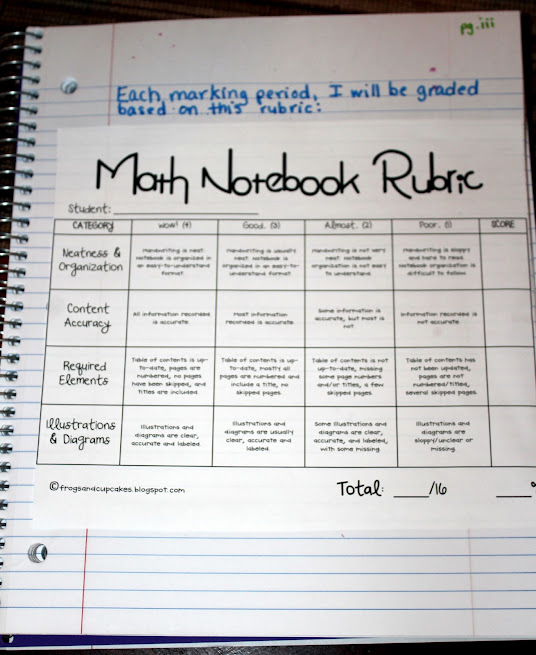 pg.iii
Each marking period, I will be graded
based on this rubric:
Math Notebook Rubric
Student:
CATEGORY
Wow! (4)
Good. (3)
Almost. (2)
Poor. (1)
SCORE
Neatness &
Organization
Handwriting is neat.
Notebook is organized in
an easy-to-understand
format.
Handwriting is usually
neat. Notebook is
organized in an easy-to-
understand format.
Handwriting is not very
neat. Notebook
organization is not easy
to understand.
Handwriting is sloppy
and hard to read.
Notebook organization is
difficult to follow.
Content
Accuracy
All information recorded
is accurate.
Most information
recorded is accurate.
Some information is
accurate, but most is
not.
Information recorded is
not accurate.
Required
Elements
Table of contents is up-
to-date, pages are
numbered, no pages
have been skipped, and
titles are included.
Table of contents is up-
to-date, mostly all
pages are numbered and
include a title, no
skipped pages.
Table of contents is not
up-to-date, missing
some page numbers
and/or titles, a few
skipped pages.
Table of contents has
not been updated,
pages are not
numbered/titled,
several skipped pages.
Illustrations
& Diagrams
Illustrations and
diagrams are clear,
accurate and labeled.
Illustrations and
diagrams are usually
clear, accurate and
labeled.
Some illustrations and
diagrams are clear,
accurate, and labeled,
with some missing.
Illustrations and
diagrams are
sloppy/unclear or
missing.
©frogsandcupcakes.blogspot.com
Total: /16